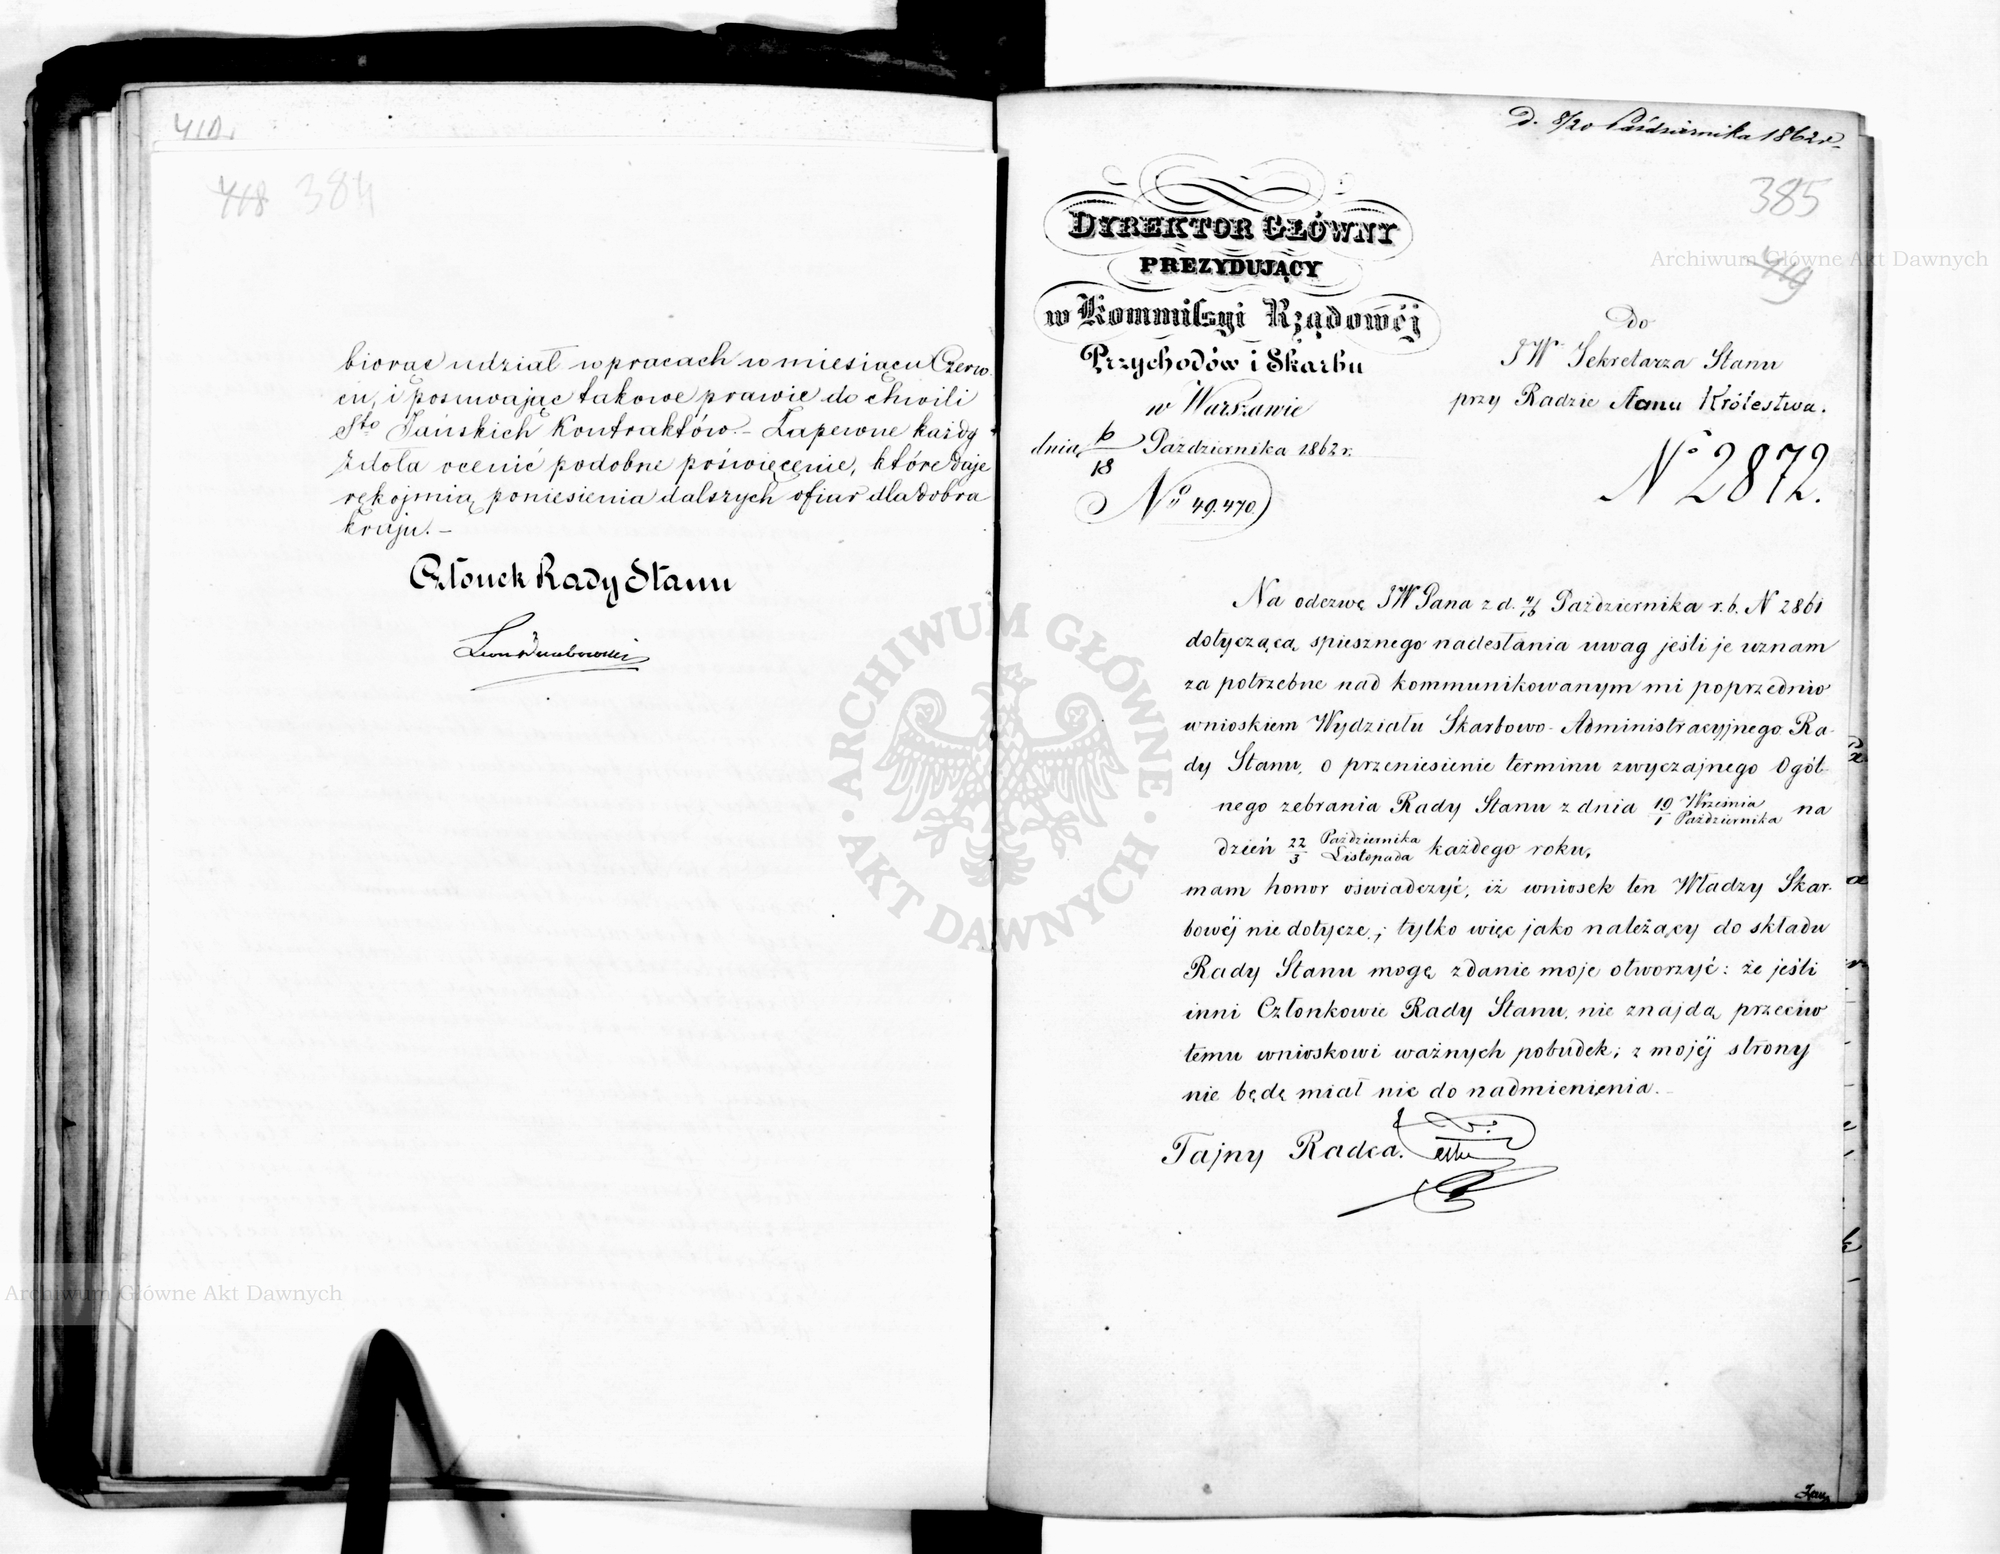 410.
418 384
biorąc udział w pracach w miesiącu Czerw.
cu, i posuwając takowe prawie do chwili
Sto Jańskich Kontraktów. – Zapewne każdy
zdoła ocenić podobne poświęcenie, które daje
rękojmią poniesienia dalszych ofiar dla dobra
kraju. –
Członek Rady Stanu
D. 8/20 Października 1862 r.
385
419
DYREKTOR GŁÓWNY
PREZYDUJĄCY
w Kommissyi Rządowéj
Przychodów i Skarbu
w Warszawie
dnia 6/18 Października 1862 r.
No 49.470.
Do
JW Sekretarza Stanu
przy Radzie Stanu Królestwa.
No 2872.
Na odezwę JW Pana z d. 4/16 Października r. b. N 2861
dotyczącą spiesznego nadesłania uwag jeśli je uznam
za potrzebne nad kommunikowanym mi poprzednio
wnioskiem Wydziału Skarbowo-Administracyjnego Ra-
dy Stanu, o przeniesienie terminu zwyczajnego Ogól-
nego zebrania Rady Stanu z dnia 19 Września / 1 Października na
dzień 22 Października / 3 Listopada każdego roku,
mam honor oświadczyć, iż wniosek ten Władzy Skar-
bowéj nie dotycze; tylko więc jako należący do składu
Rady Stanu mogę zdanie moje otworzyć: że jeśli
inni Członkowie Rady Stanu, nie znajdą przeciw
temu wnioskowi ważnych pobudek; z mojéj strony
nie będę miał nic do nadmienienia. –
Tajny Radca.
ARCHIWUM GŁÓWNE
AKT DAWNYCH
Archiwum Główne Akt Dawnych
Archiwum Główne Akt Dawnych